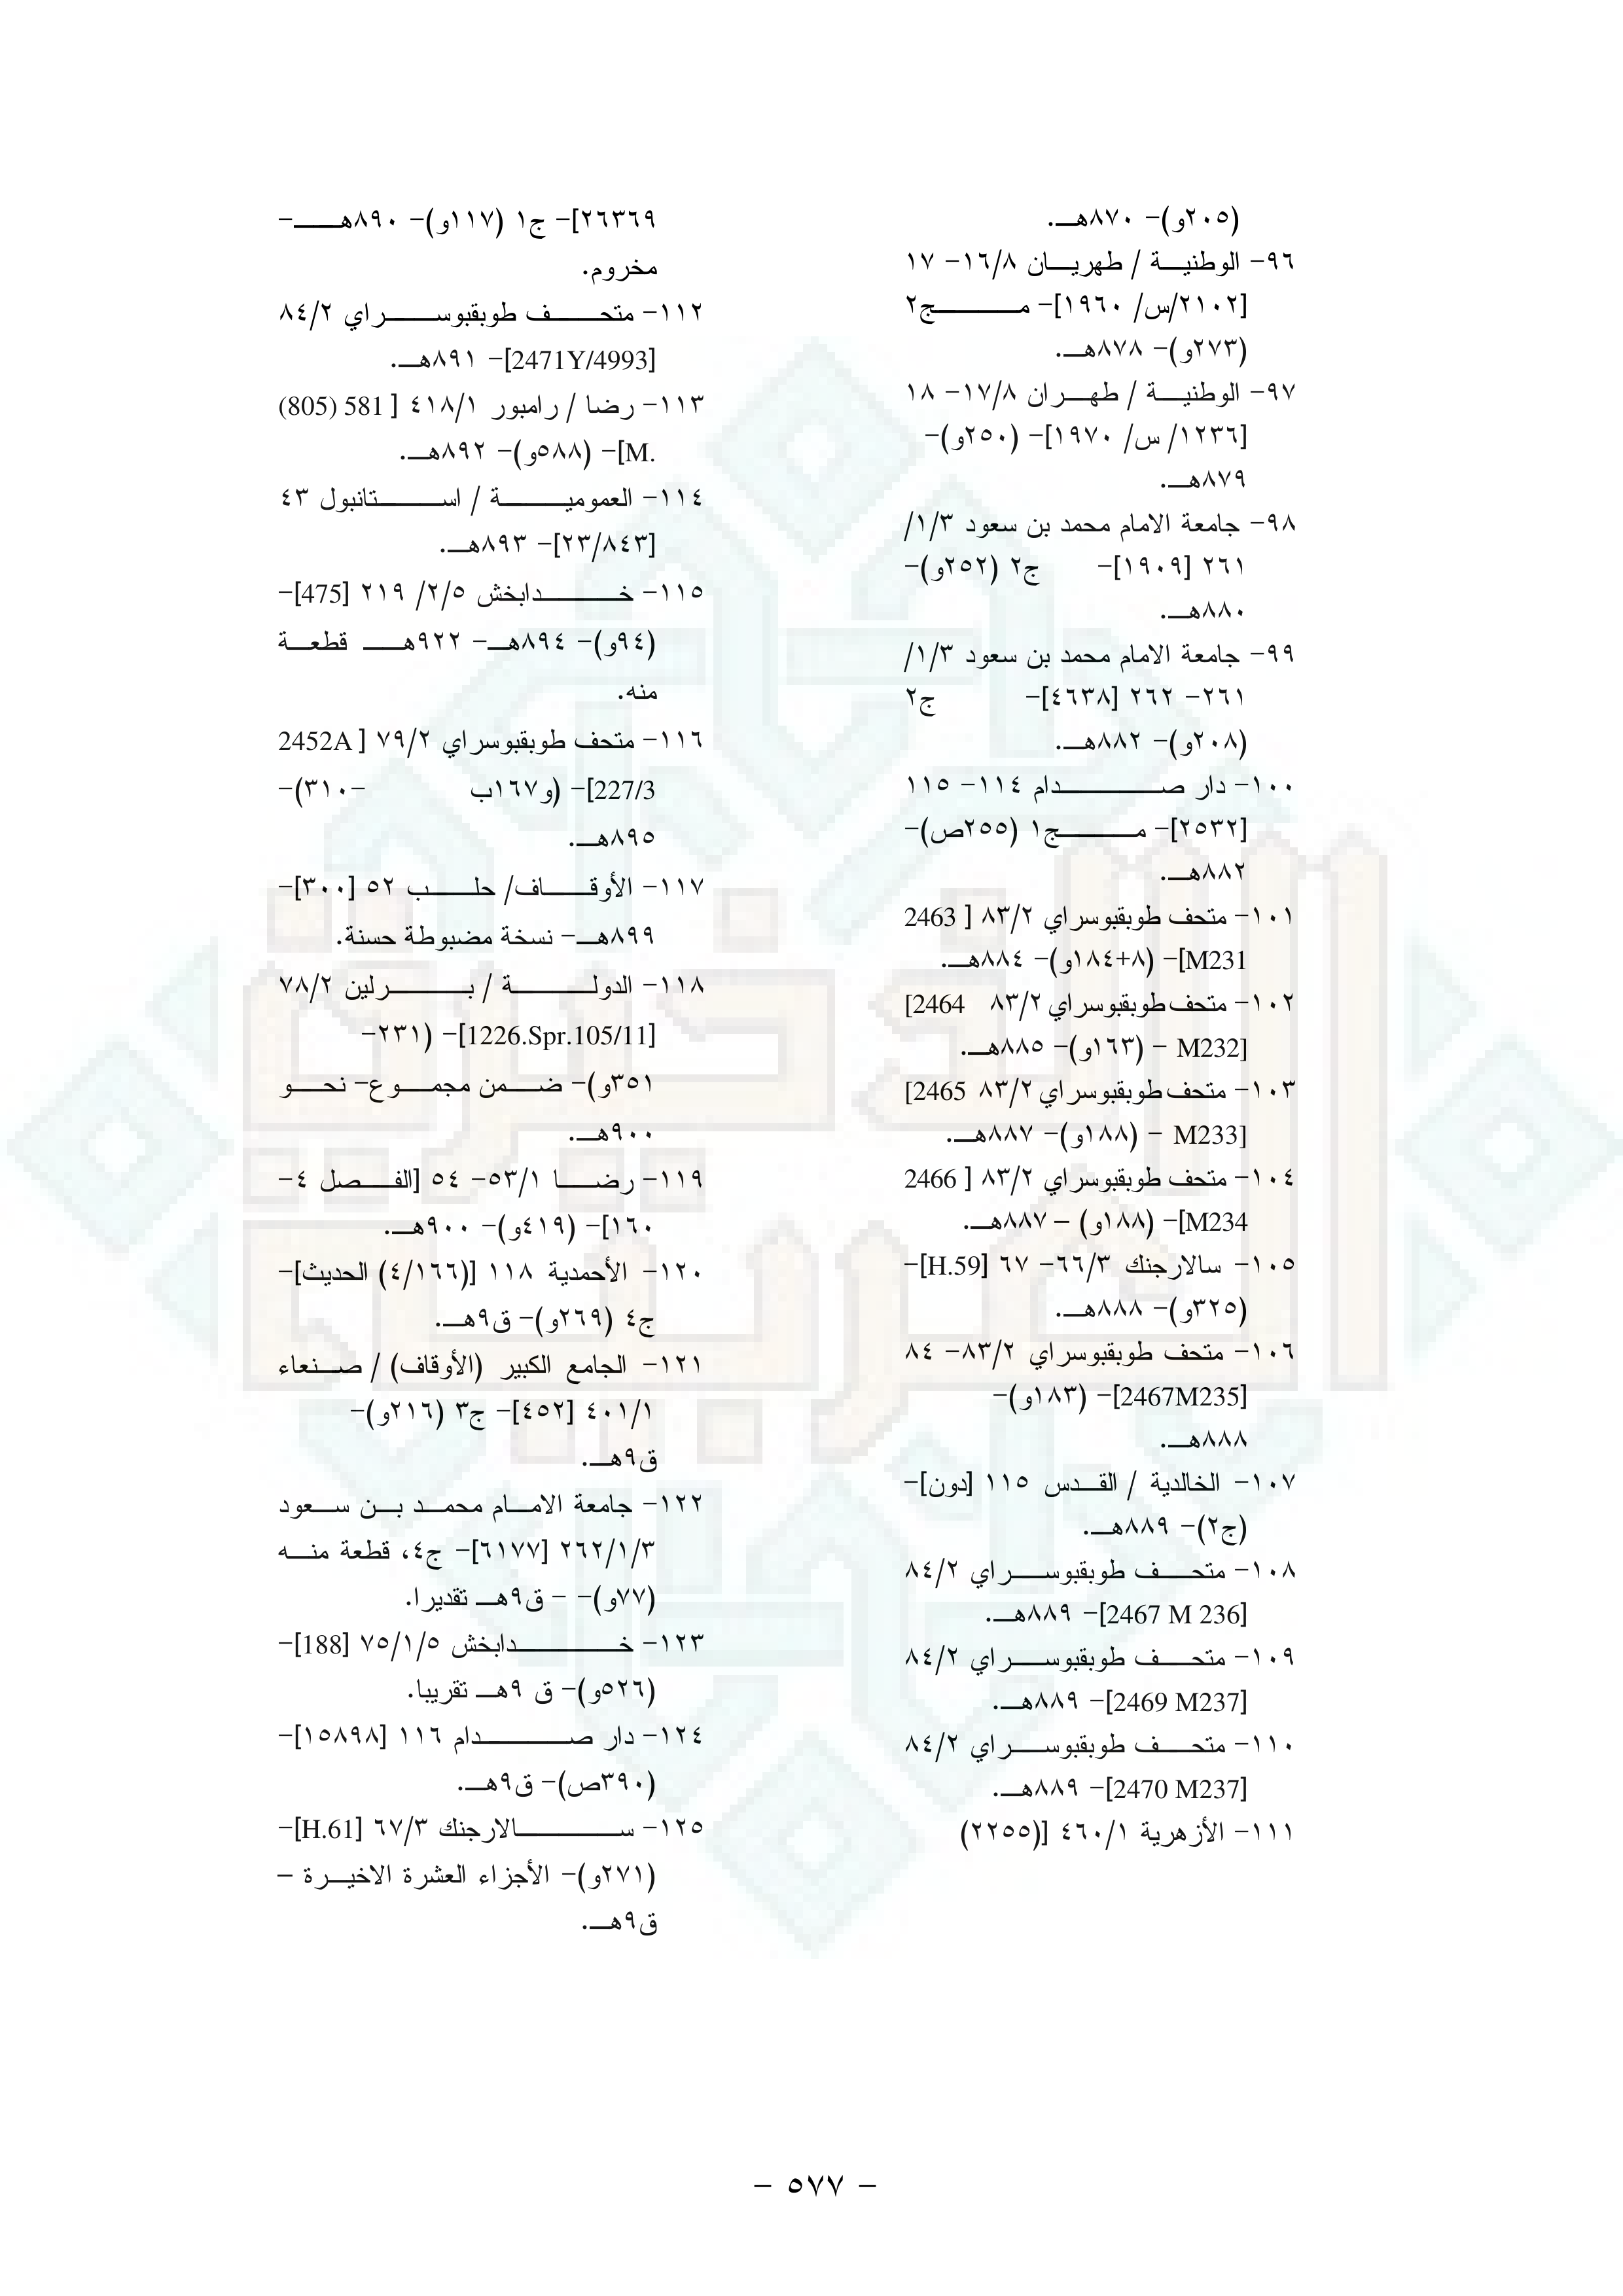 (٢٠٥و)- ٨٧٠هـ.
٩٦- الوطنية / طهريان ١٦/٨- ١٧
[٢١٠٢/س/ ١٩٦٠]- مج٢
(٢٧٣و)- ٨٧٨هـ.
٩٧- الوطنية / طهران ١٧/٨- ١٨
[١٢٣٦/ س/ ١٩٧٠]- (٢٥٠و)-
٨٧٩هـ.
٩٨- جامعة الامام محمد بن سعود ١/٣/
٢٦١ [١٩٠٩]- ج٢ (٢٥٢و)-
٨٨٠هـ.
٩٩- جامعة الامام محمد بن سعود ١/٣/
٢٦١- ٢٦٢ [٤٦٣٨]- ج٢
(٢٠٨و)- ٨٨٢هـ.
١٠٠- دار صدام ١١٤- ١١٥
[٢٥٣٢]- مج١ (٢٥٥ص)-
٨٨٢هـ.
١٠١- متحف طوبقبوسراي ٨٣/٢ [ 2463
M231]- (٨+١٨٤و)- ٨٨٤هـ.
١٠٢- متحف طوبقبوسراي ٨٣/٢ 2464]
[M232 - (١٦٣و)- ٨٨٥هـ.
١٠٣- متحف طوبقبوسراي ٨٣/٢ 2465]
[M233 - (١٨٨و)- ٨٨٧هـ.
١٠٤- متحف طوبقبوسراي ٨٣/٢ [ 2466
M234]- (١٨٨و) – ٨٨٧هـ.
١٠٥- سالارجنك ٦٦/٣- ٦٧ [H.59]-
(٣٢٥و)- ٨٨٨هـ.
١٠٦- متحف طوبقبوسراي ٨٣/٢- ٨٤
[2467M235]- (١٨٣و)-
٨٨٨هـ.
١٠٧- الخالدية / القدس ١١٥ [دون]-
(ج٢)- ٨٨٩هـ.
١٠٨- متحف طوبقبوسراي ٨٤/٢
[2467 M 236]- ٨٨٩هـ.
١٠٩- متحف طوبقبوسراي ٨٤/٢
[2469 M237]- ٨٨٩هـ.
١١٠- متحف طوبقبوسراي ٨٤/٢
[2470 M237]- ٨٨٩هـ.
١١١- الأزهرية ٤٦٠/١ [(٢٢٥٥)
٢٦٣٦٩]- ج١ (١١٧و)- ٨٩٠هـ-
مخروم.
١١٢- متحف طوبقبوسراي ٨٤/٢
[2471Y/4993]- ٨٩١هـ.
١١٣- رضا / رامبور ٤١٨/١ [ 581 (805)
M.]- (٥٨٨و)- ٨٩٢هـ.
١١٤- العمومية / استانبول ٤٣
[٢٣/٨٤٣]- ٨٩٣هـ.
١١٥- خدابخش ٢/٥/ ٢١٩ [475]-
(٩٤و)- ٨٩٤هـ- ٩٢٢هـ قطعة
منه.
١١٦- متحف طوبقبوسراي ٧٩/٢ [ 2452A
227/3]- (و١٦٧ب -٣١٠)-
٨٩٥هـ.
١١٧- الأوقاف/ حلب ٥٢ [٣٠٠]-
٨٩٩هـ- نسخة مضبوطة حسنة.
١١٨- الدولة / برلين ٧٨/٢
[1226.Spr.105/11]- (٢٣١-
٣٥١و)- ضمن مجموع- نحو
٩٠٠هـ.
١١٩- رضا ٥٣/١- ٥٤ [الفصل ٤-
١٦٠]- (٤١٩و)- ٩٠٠هـ.
١٢٠- الأحمدية ١١٨ [(٤/١٦٦) الحديث]-
ج٤ (٢٦٩و)- ق٩هـ.
١٢١- الجامع الكبير (الأوقاف) / صنعاء
٤٠١/١ [٤٥٢]- ج٣ (٢١٦و)-
ق٩هـ.
١٢٢- جامعة الامام محمد بن سعود
٢٦٢/١/٣ [٦١٧٧]- ج٤، قطعة منه
(٧٧و)- - ق٩هـ تقديرا.
١٢٣- خدابخش ٧٥/١/٥ [188]-
(٥٢٦و)- ق ٩هـ تقريبا.
١٢٤- دار صدام ١١٦ [١٥٨٩٨]-
(٣٩٠ص)- ق٩هـ.
١٢٥- سالارجنك ٦٧/٣ [H.61]-
(٢٧١و)- الأجزاء العشرة الاخيرة –
ق٩هـ.
- ٥٧٧ -